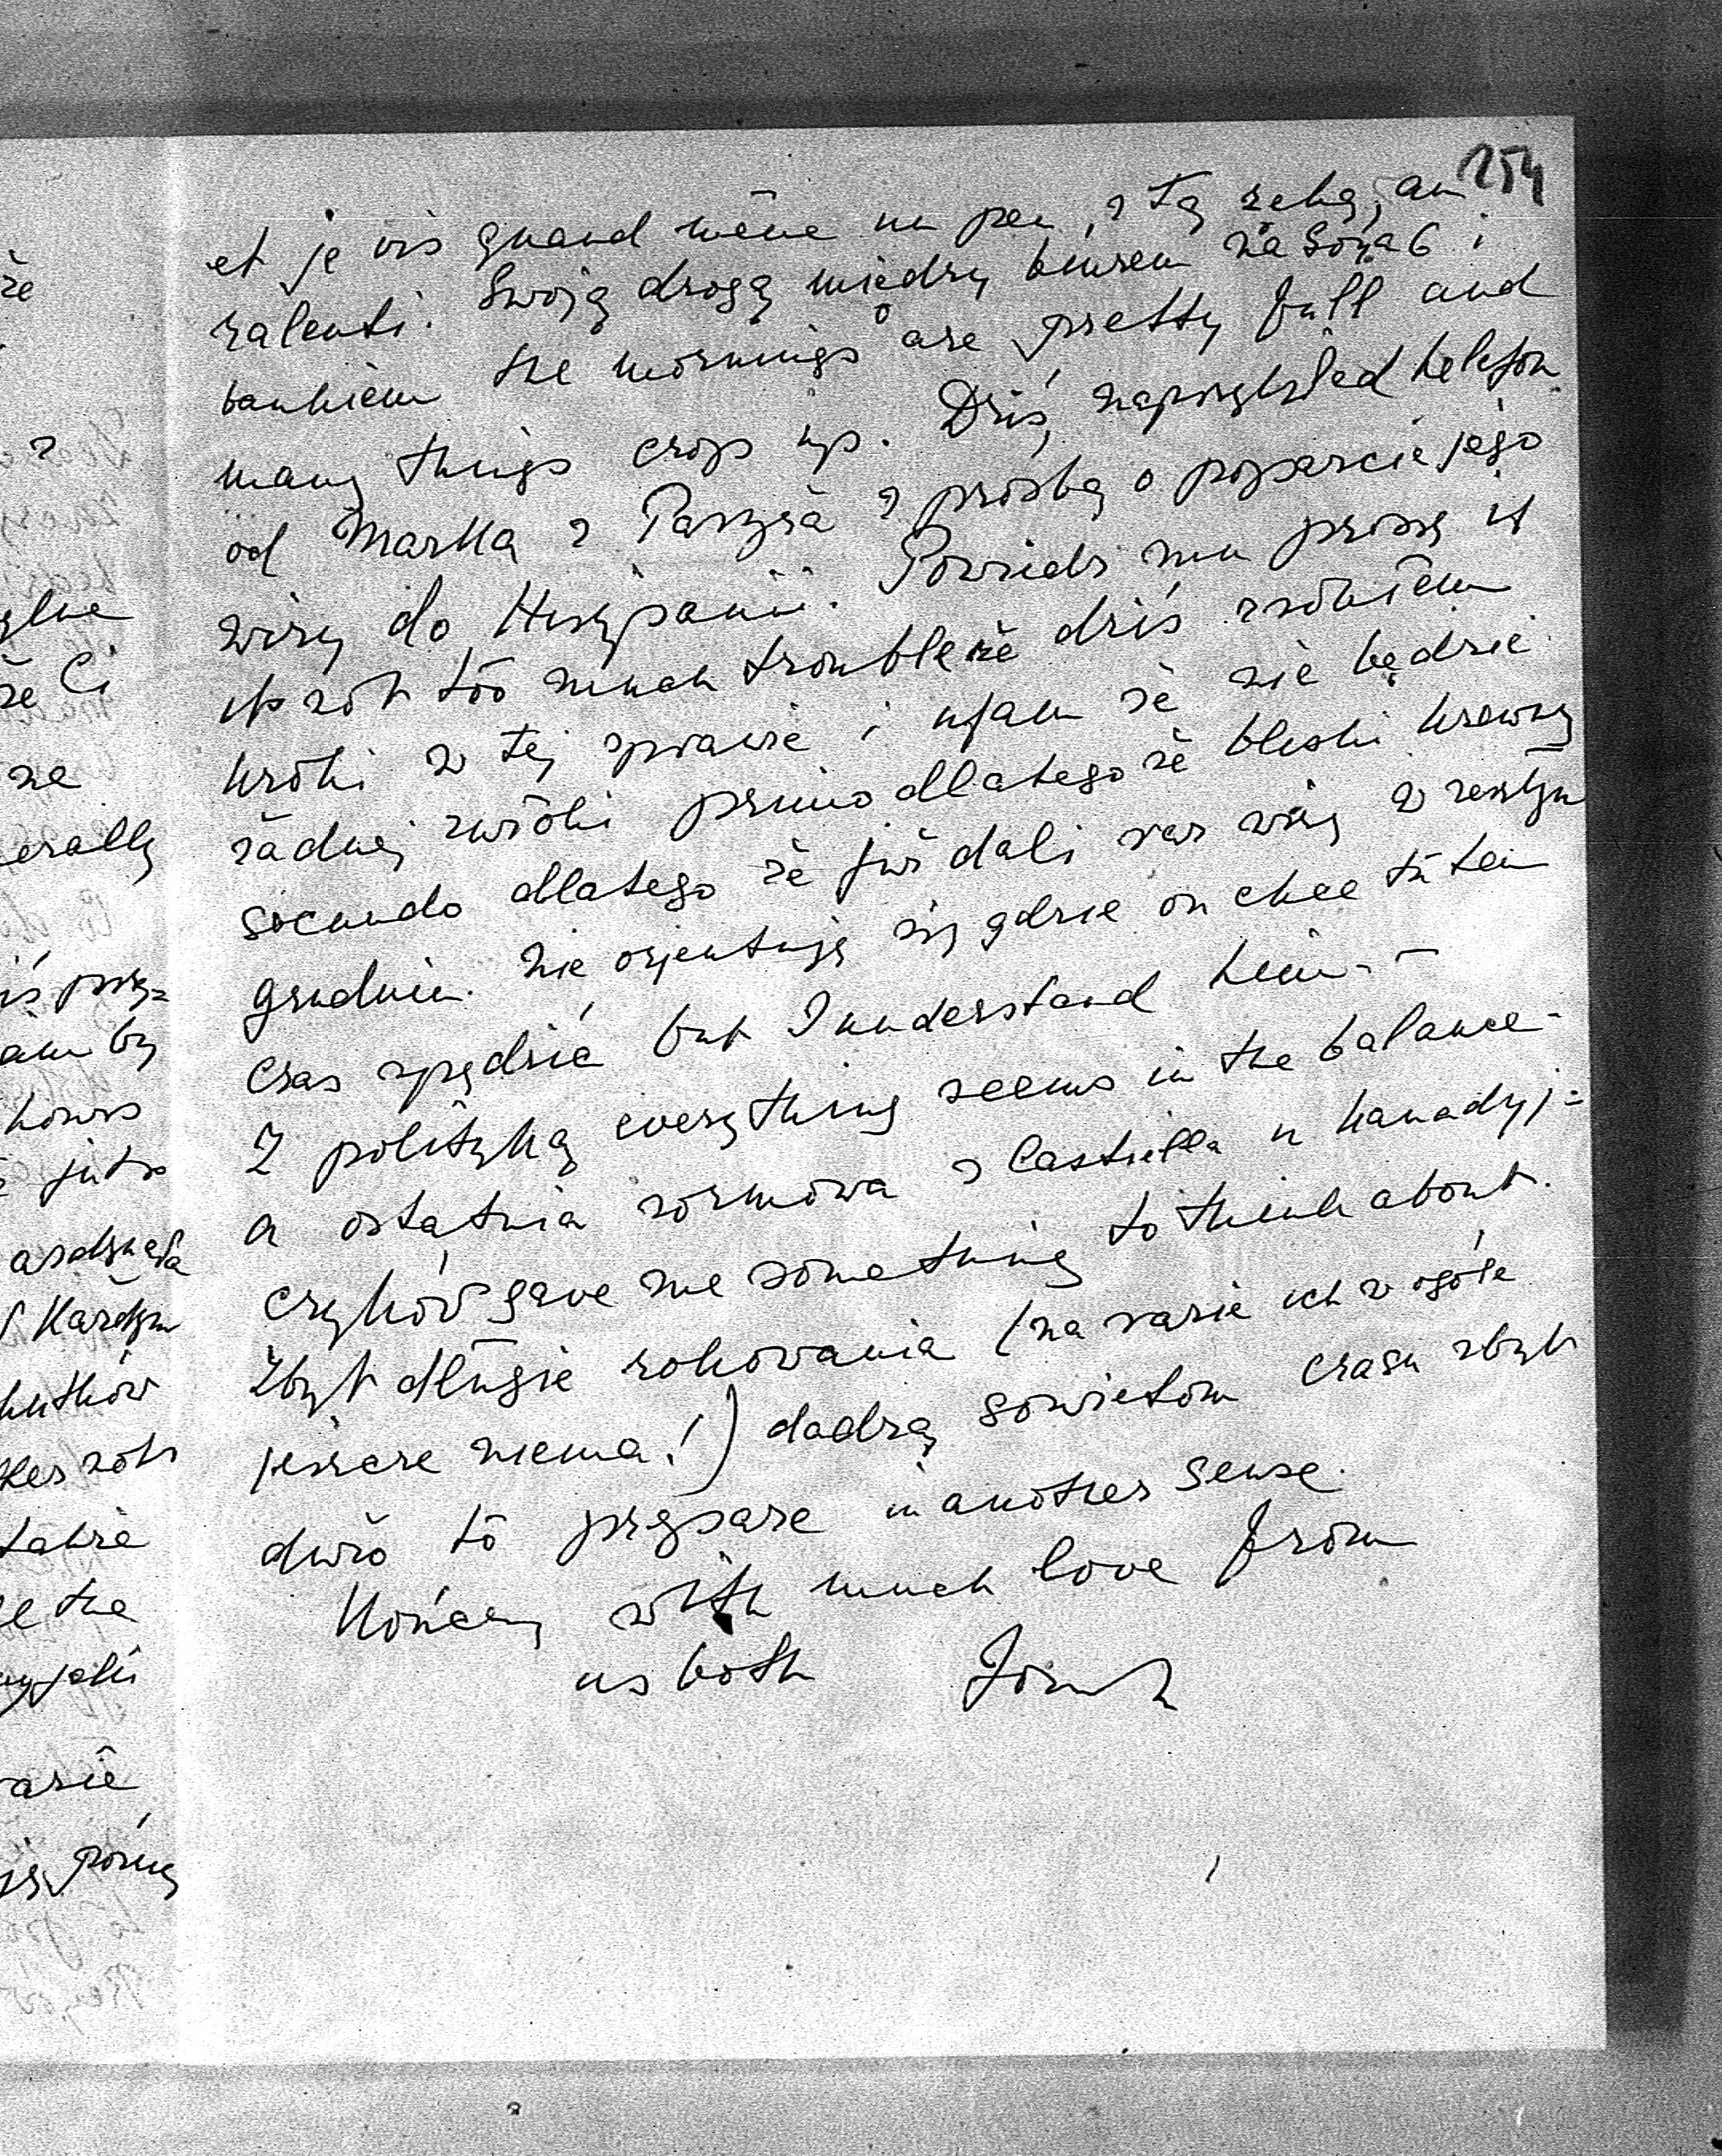 254
et je vis quand même un peu, z tą ręką, au
ralenti. Swoją drogą między biurem na Soya 6 i
bankiem the mornings are pretty full and
many things crop up. Dziś, naprzykład telefon
od Marka z Paryża z prośbą o poparcie jego
wizy do Hiszpanii. Powiedz mu proszę if
its not too much trouble że dziś zrobiłem
kroki w tej sprawie i ufam że nie będzie
żadnej zwłoki primo dlatego że bliski krewny
secundo dlatego że już dali raz wizę w zeszłym
grudniu. Nie orjentuję się gdzie on chce tu ten
czas spędzić but I understand him. –
Z polityką everything seems in the balance -
a ostatnia rozmowa z Castiella u kanadyj=
czyków gave me something to think about.
Zbyt długie rokowania (na razie ich w ogóle
jeszcze niema!) dadzą sowietom czasu zbyt
dużo to prepare in another sense.
Kończę with much love from
us both
że
z
że Ci
ne
by
hours
jutro
Każdym
not
takie
the